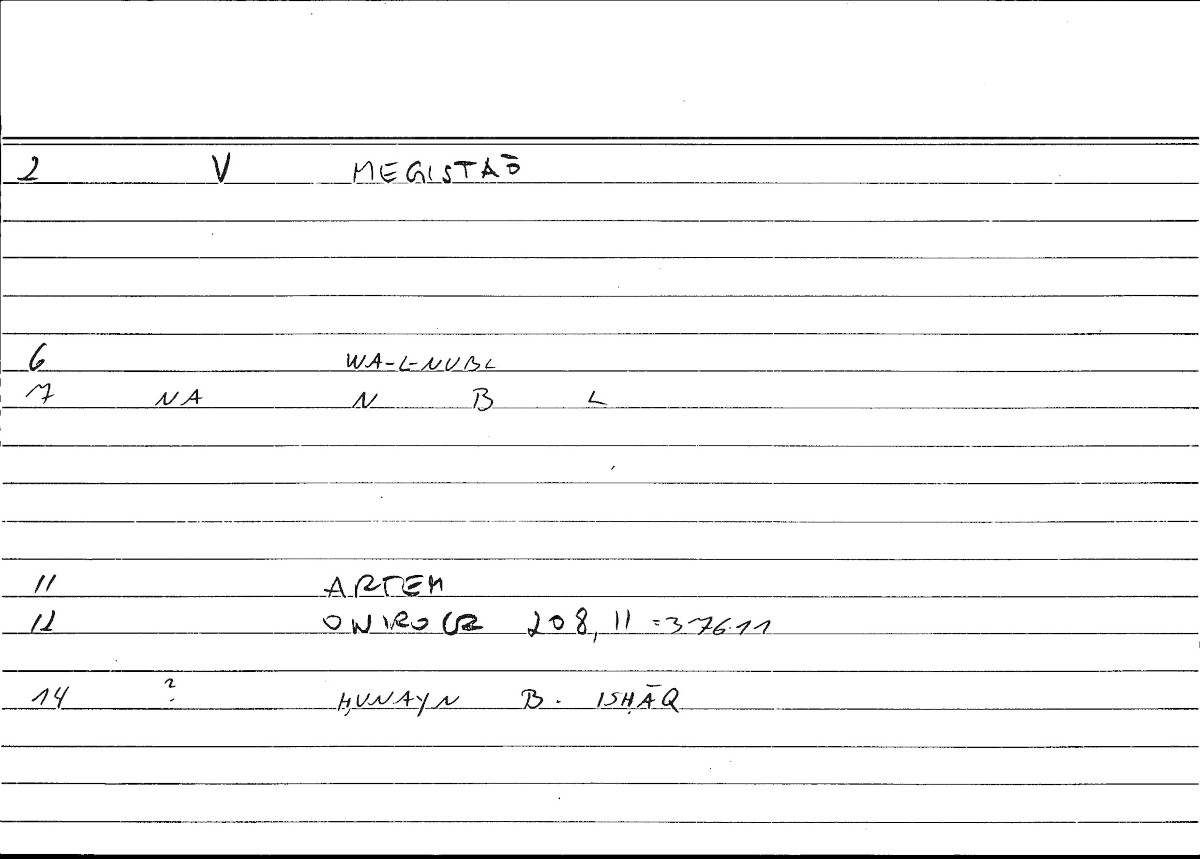 2 V MEGISTAŌ
6 WA-L-NUBL
7 NA N B L
11 ARTEM
12 ONIROCR 208, 11 =376.11
14 ? ḤUNAYN B. ISḤĀQ